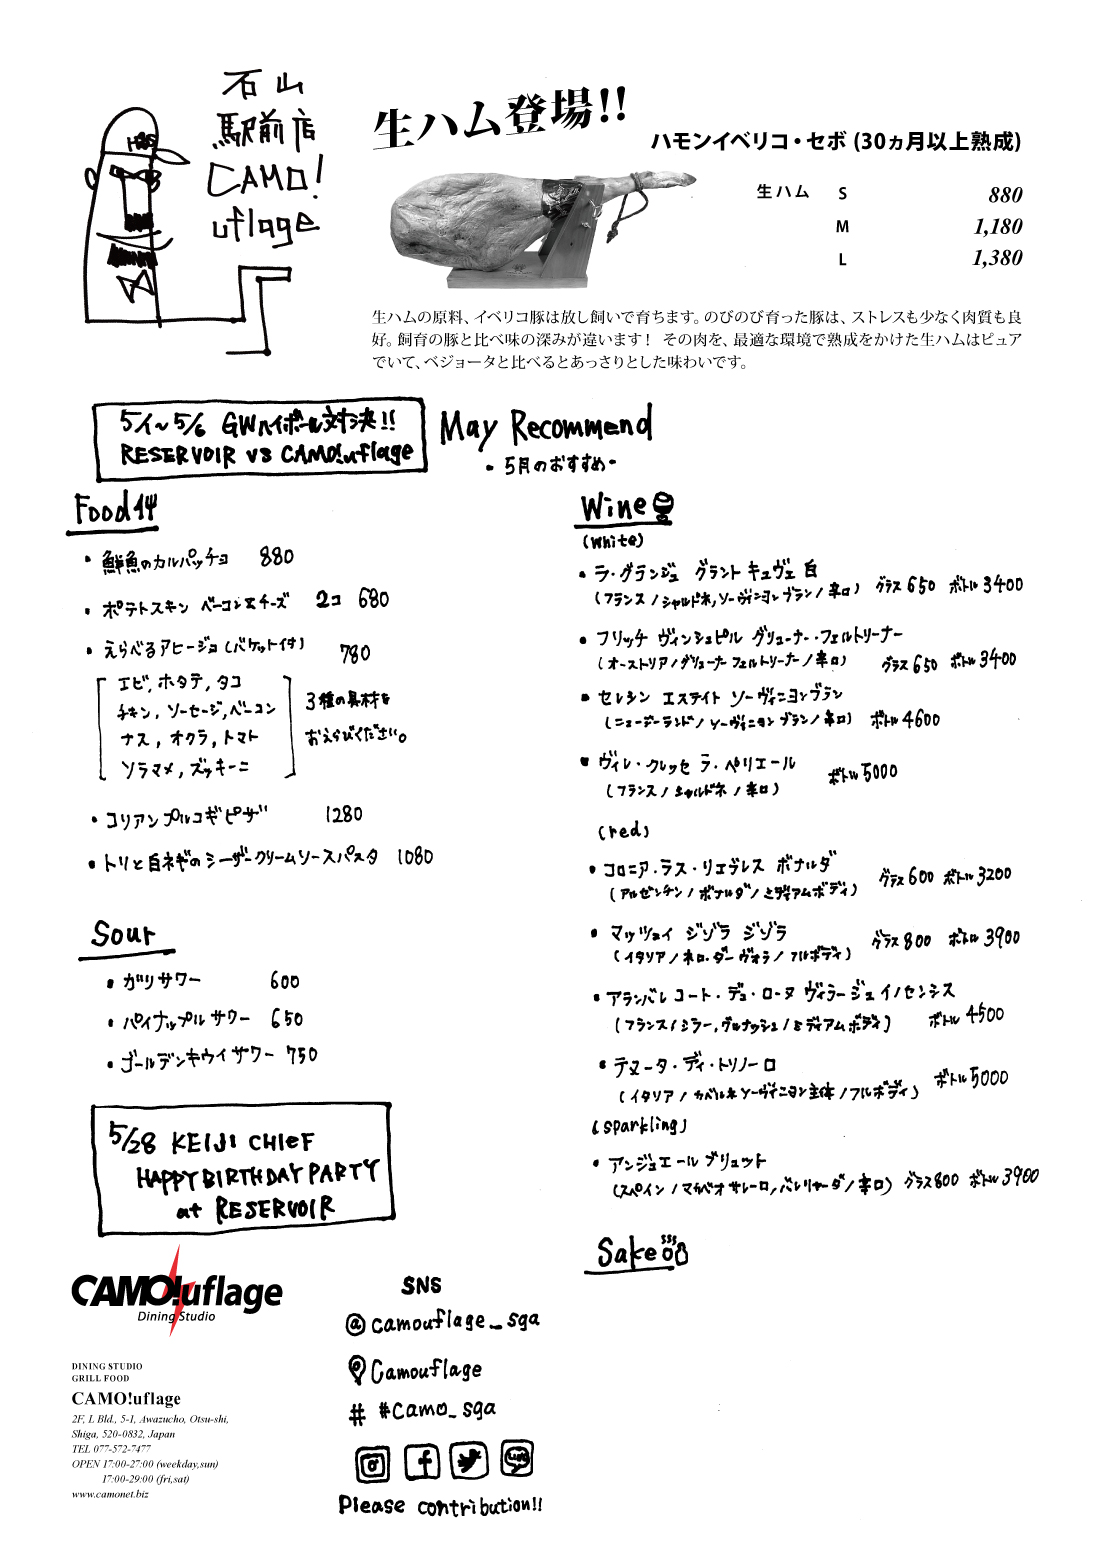 石山
駅前店
CAMO!
uflage
生ハム登場!!
ハモンイベリコ・セボ (30ヵ月以上熟成)
生ハム S 880
M 1,180
L 1,380
生ハムの原料、イベリコ豚は放し飼いで育ちます。のびのび育った豚は、ストレスも少なく肉質も良
好。飼育の豚と比べ味の深みが違います! その肉を、最適な環境で熟成をかけた生ハムはピュア
でいて、ベジョータと比べるとあっさりとした味わいです。
5/1~5/6 GWハイボール対決!!
RESERVOIR VS CAMO!uflage
May Recommend
- 5月のおすすめ -
Food
・鮮魚のカルパッチョ 880
・ポテトスキン ベーコンとチーズ 2コ 680
・えらべるアヒージョ (バケット付) 780
エビ, ホタテ, タコ
チキン, ソーセージ, ベーコン
ナス, オクラ, トマト
ソラマメ, ズッキーニ
3種の具材を
おえらびください。
・コリアンプルコギピザ 1280
・トリと白ネギのシーザークリームソースパスタ 1080
Sour
・ガリサワー 600
・パイナップルサワー 650
・ゴールデンキウイサワー 750
5/28 KEIJI CHIEF
HAPPY BIRTHDAY PARTY
at RESERVOIR
Wine
(white)
・ラ・グランジュ グラント キュヴェ 白
(フランス / シャルドネ, ソーヴィニヨンブラン / 辛口) グラス 650 ボトル 3400
・フリッチ ヴィンシュピル グリューナー・フェルトリーナー
(オーストリア / グリューナーフェルトリーナー / 辛口) グラス 650 ボトル 3400
・セレシン エステイト ソーヴィニヨンブラン
(ニュージーランド / ソーヴィニヨン ブラン / 辛口) ボトル 4600
・ヴィレ・クレッセ ラ・ペリエール
(フランス / シャルドネ / 辛口) ボトル 5000
(red)
・コロニア・ラス・リエブレス ボナルダ
(アルゼンチン / ボナルダ / ミディアムボディ) グラス 600 ボトル 3200
・マッツェイ ジゾラ ジゾラ
(イタリア / ネロ・ダーヴォラ / フルボディ) グラス 800 ボトル 3900
・アランバレ コート・デュ・ローヌ ヴィラージュ イノセンシス
(フランス / シラー, グルナッシュ / ミディアムボディ) ボトル 4500
・テヌータ・ディ・トリノーロ
(イタリア / カベルネソーヴィニヨン主体 / フルボディ) ボトル 5000
(sparkling)
・アンジュエール ブリュット
(スペイン / マカベオ サレーロ, パレリャーダ / 辛口) グラス 800 ボトル 3900
Sake
CAMO!uflage
Dining Studio
DINING STUDIO
GRILL FOOD
CAMO!uflage
2F, L Bld., 5-1, Awazucho, Otsu-shi,
Shiga, 520-0832, Japan
TEL 077-572-7477
OPEN 17:00-27:00 (weekday,sun)
17:00-29:00 (fri,sat)
www.camonet.biz
SNS
@camouflage_sga
Camouflage
# #camo_sga
LINE
Please contribution!!